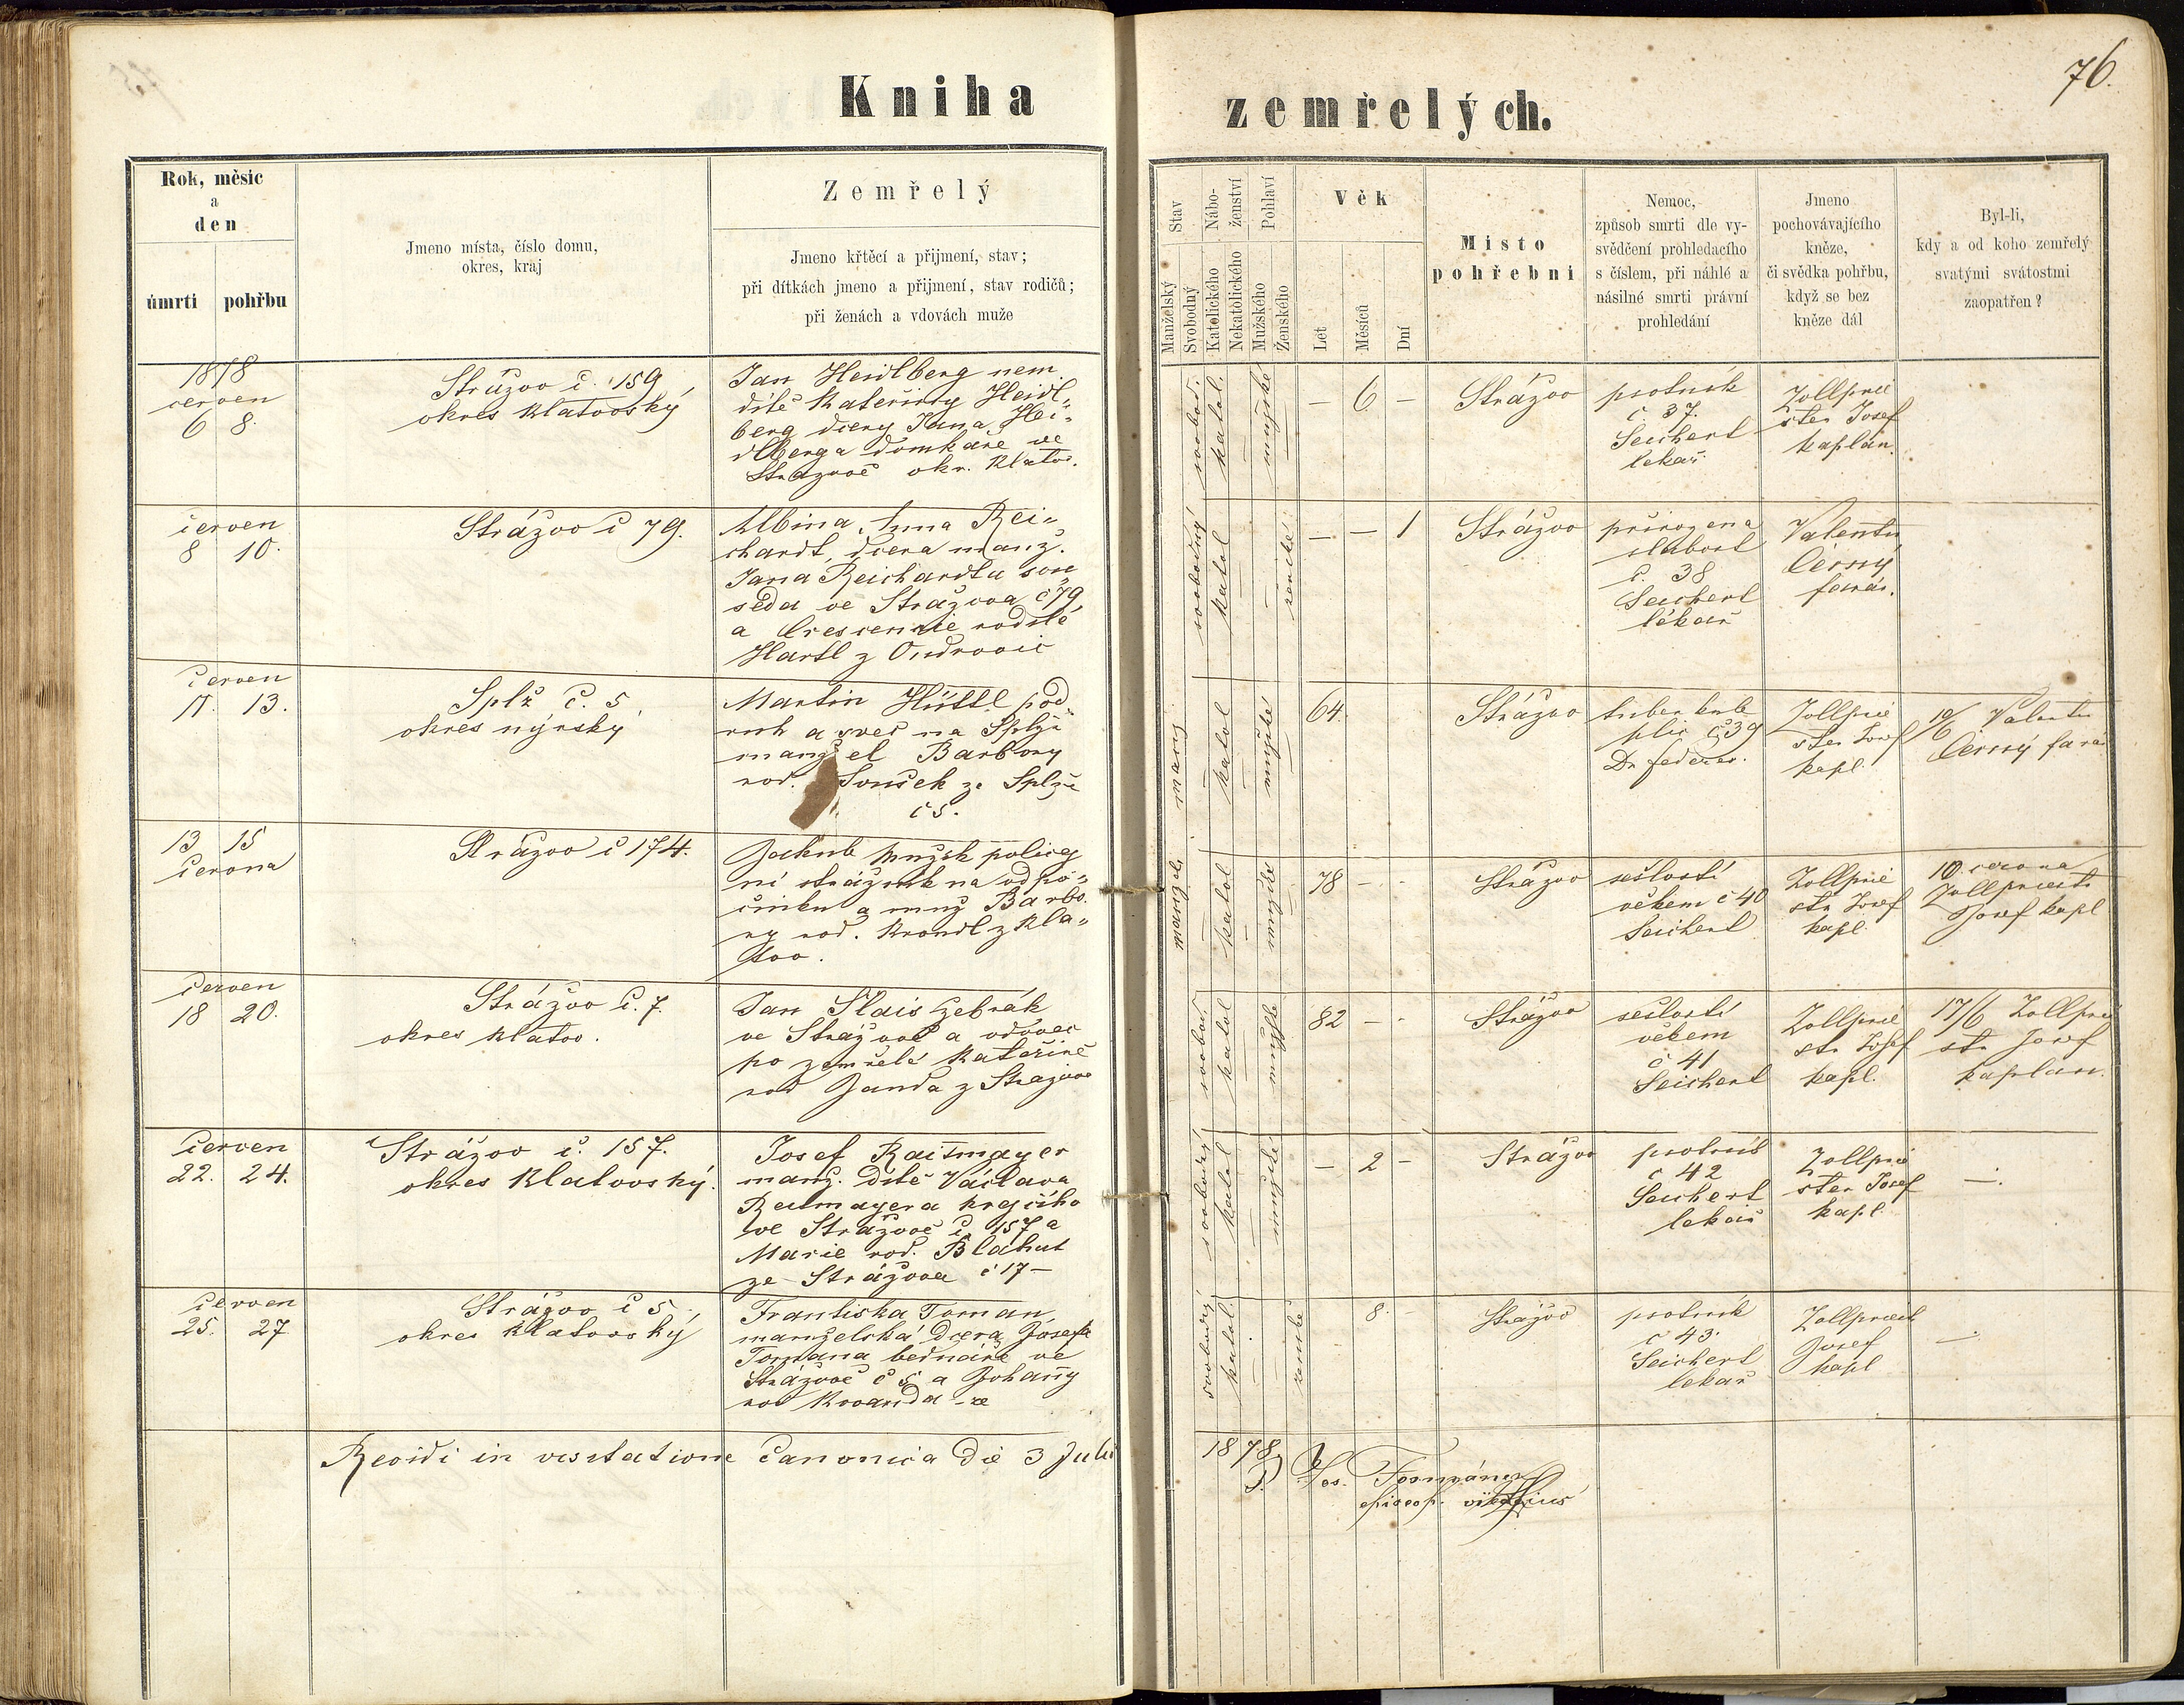 76.
Kniha zemřelých.
Rok, měsíc
a
den
úmrtí
pohřbu
Jmeno místa, číslo domu,
okres, kraj
Zemřelý
Jmeno křtěcí a přijmení, stav;
při dítkách jmeno a přijmení, stav rodičů;
při ženách a vdovách muže
Stav
Manželský
Svobodný
Nábo-
ženství
Katolického
Nekatolického
Pohlaví
Mužského
Ženského
Věk
Let
Měsíců
Dní
Místo
pohřební
Nemoc,
způsob smrti dle vy-
svědčení prohledacího
s číslem, při náhlé a
násilné smrti právní
prohledání
Jmeno
pochovávajícího
kněze,
či svědka pohřbu,
když se bez
kněze dál
Byl-li,
kdy a od koho zemřelý
svatými svátostmi
zaopatřen?
1878
červen
6 8.
Strážov č. 159
okres Klatovský
Jan Heidlberg nem.
dítě Kateřiny Heidl„
berg dcery Jana Hei„
dlberga domkáře ve
Strážově okr. Klatov.
svobod.
katol.
mužské
— 6 —
Strážov
psotník
č 37.
Seichert
lékař
Zollprie
ster Josef
kaplan.
červen
8 10.
Strážov č 79.
Albina Anna Rei„
chardt, dcera manž.
Jana Reichardta sou„
seda ve Strážova č 79,
a Crescencie rodilé
Hartl z Ondřovic
svobodný
katol
ženské
— — 1
Strážov
přirozená
slabost
č. 38
Seichert
lékař
Valentin
Černý
farář.
červen
11. 13.
Splž č. 5
okres nýrský
Martin Hüttl pod„
ruh a švec na Splži
manžel Barbory
rod. Souček ze Splže
č 5.
manž
katol
mužské
64.
Strážov
tuberkule
plic č 39
Dr. Federer.
Zollprie
ster Josef
kapl.
10/6 Valentin
Černý farář
13 15
června
Strážov č 174.
Jakub Mužik policej
ní strážník na odpo„
činku a muž Barbo
ry rod. Krondl z Kla„
tov.
manžel.
katol
mužské
78 - -
Strážov
sešlostí
věkem č 40
Seichert
Zollprie
str Josef
kapl.
10. června
Zollpriestr
Josef kapl
červen
18 20.
Strážov č. 7.
okres Klatov.
Jan Slais žebrák
ve Strážově a vdovec
po zemřelé Kateřině
rod Janda z Strážova
svobod.
katol
mužské
82 - -
Strážov
sešlostí
věkem
č 41
Seichert
Zollprie
str Josef
kapl.
17/6 Zollprie
str Josef
kaplan.
červen
22. 24.
Strážov č. 157.
okres Klatovský.
Josef Raitmayer
manž. dítě Václava
Reitmayera krejčího
ve Strážově č. 157 a
Marie rod. Bláhut
ze Strážova č 17 —
svobodný
katol
mužské
— 2 -
Strážov
psotník
č 42
Seichert
lékař
Zollprie
ster Josef
kapl.
—.
červen
25. 27
Strážov č 5
okres Klatovský
Františka Toman
manželská dcera Josefa
Tomana bednáře ve
Strážově č 5 a Johany
rod Kvanda ze
svobodný
katol
ženské
8. -
Strážov
psotník
č 43.
Seichert
lékař
Zollpriest
Josef
kapl
—.
Revidi in visitatione Canonica die 3 Julii 1878
Jos.
episcop. vikarius